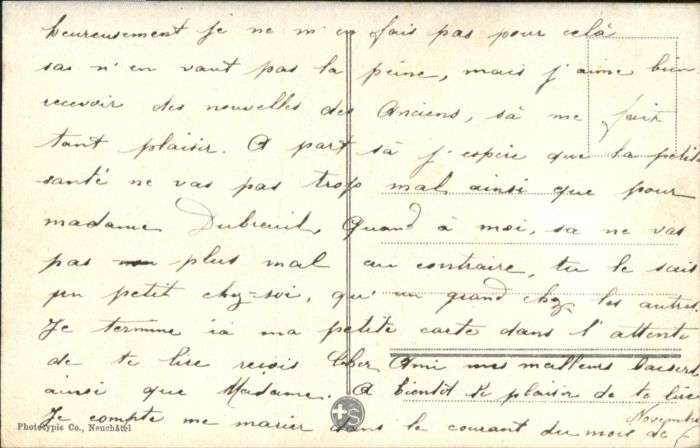 heureusement je ne m'en fais pas pour celà
sas n'en vaut pas la peine, mais j'aime bien
recevoir des nouvelles des Anciens, sà me fait
tant plaisir. A part sà j'espère que ta petite
santé ne vas pas trop mal ainsi que pour
madame Dubreuil, Quand à moi, sa ne vas
pas plus mal au contraire, tu le sais
un petit chez-soi, qu'un grand chez les autres.
Je termine ià ma petite carte dans l'attente
de te lire reçois Cher Ami mes meilleurs baisers
ainsi que Madame. A bientôt le plaisir de te lire
Je compte me marier dans le courant du mois de Novembre
Phototypie Co., Neuchâtel